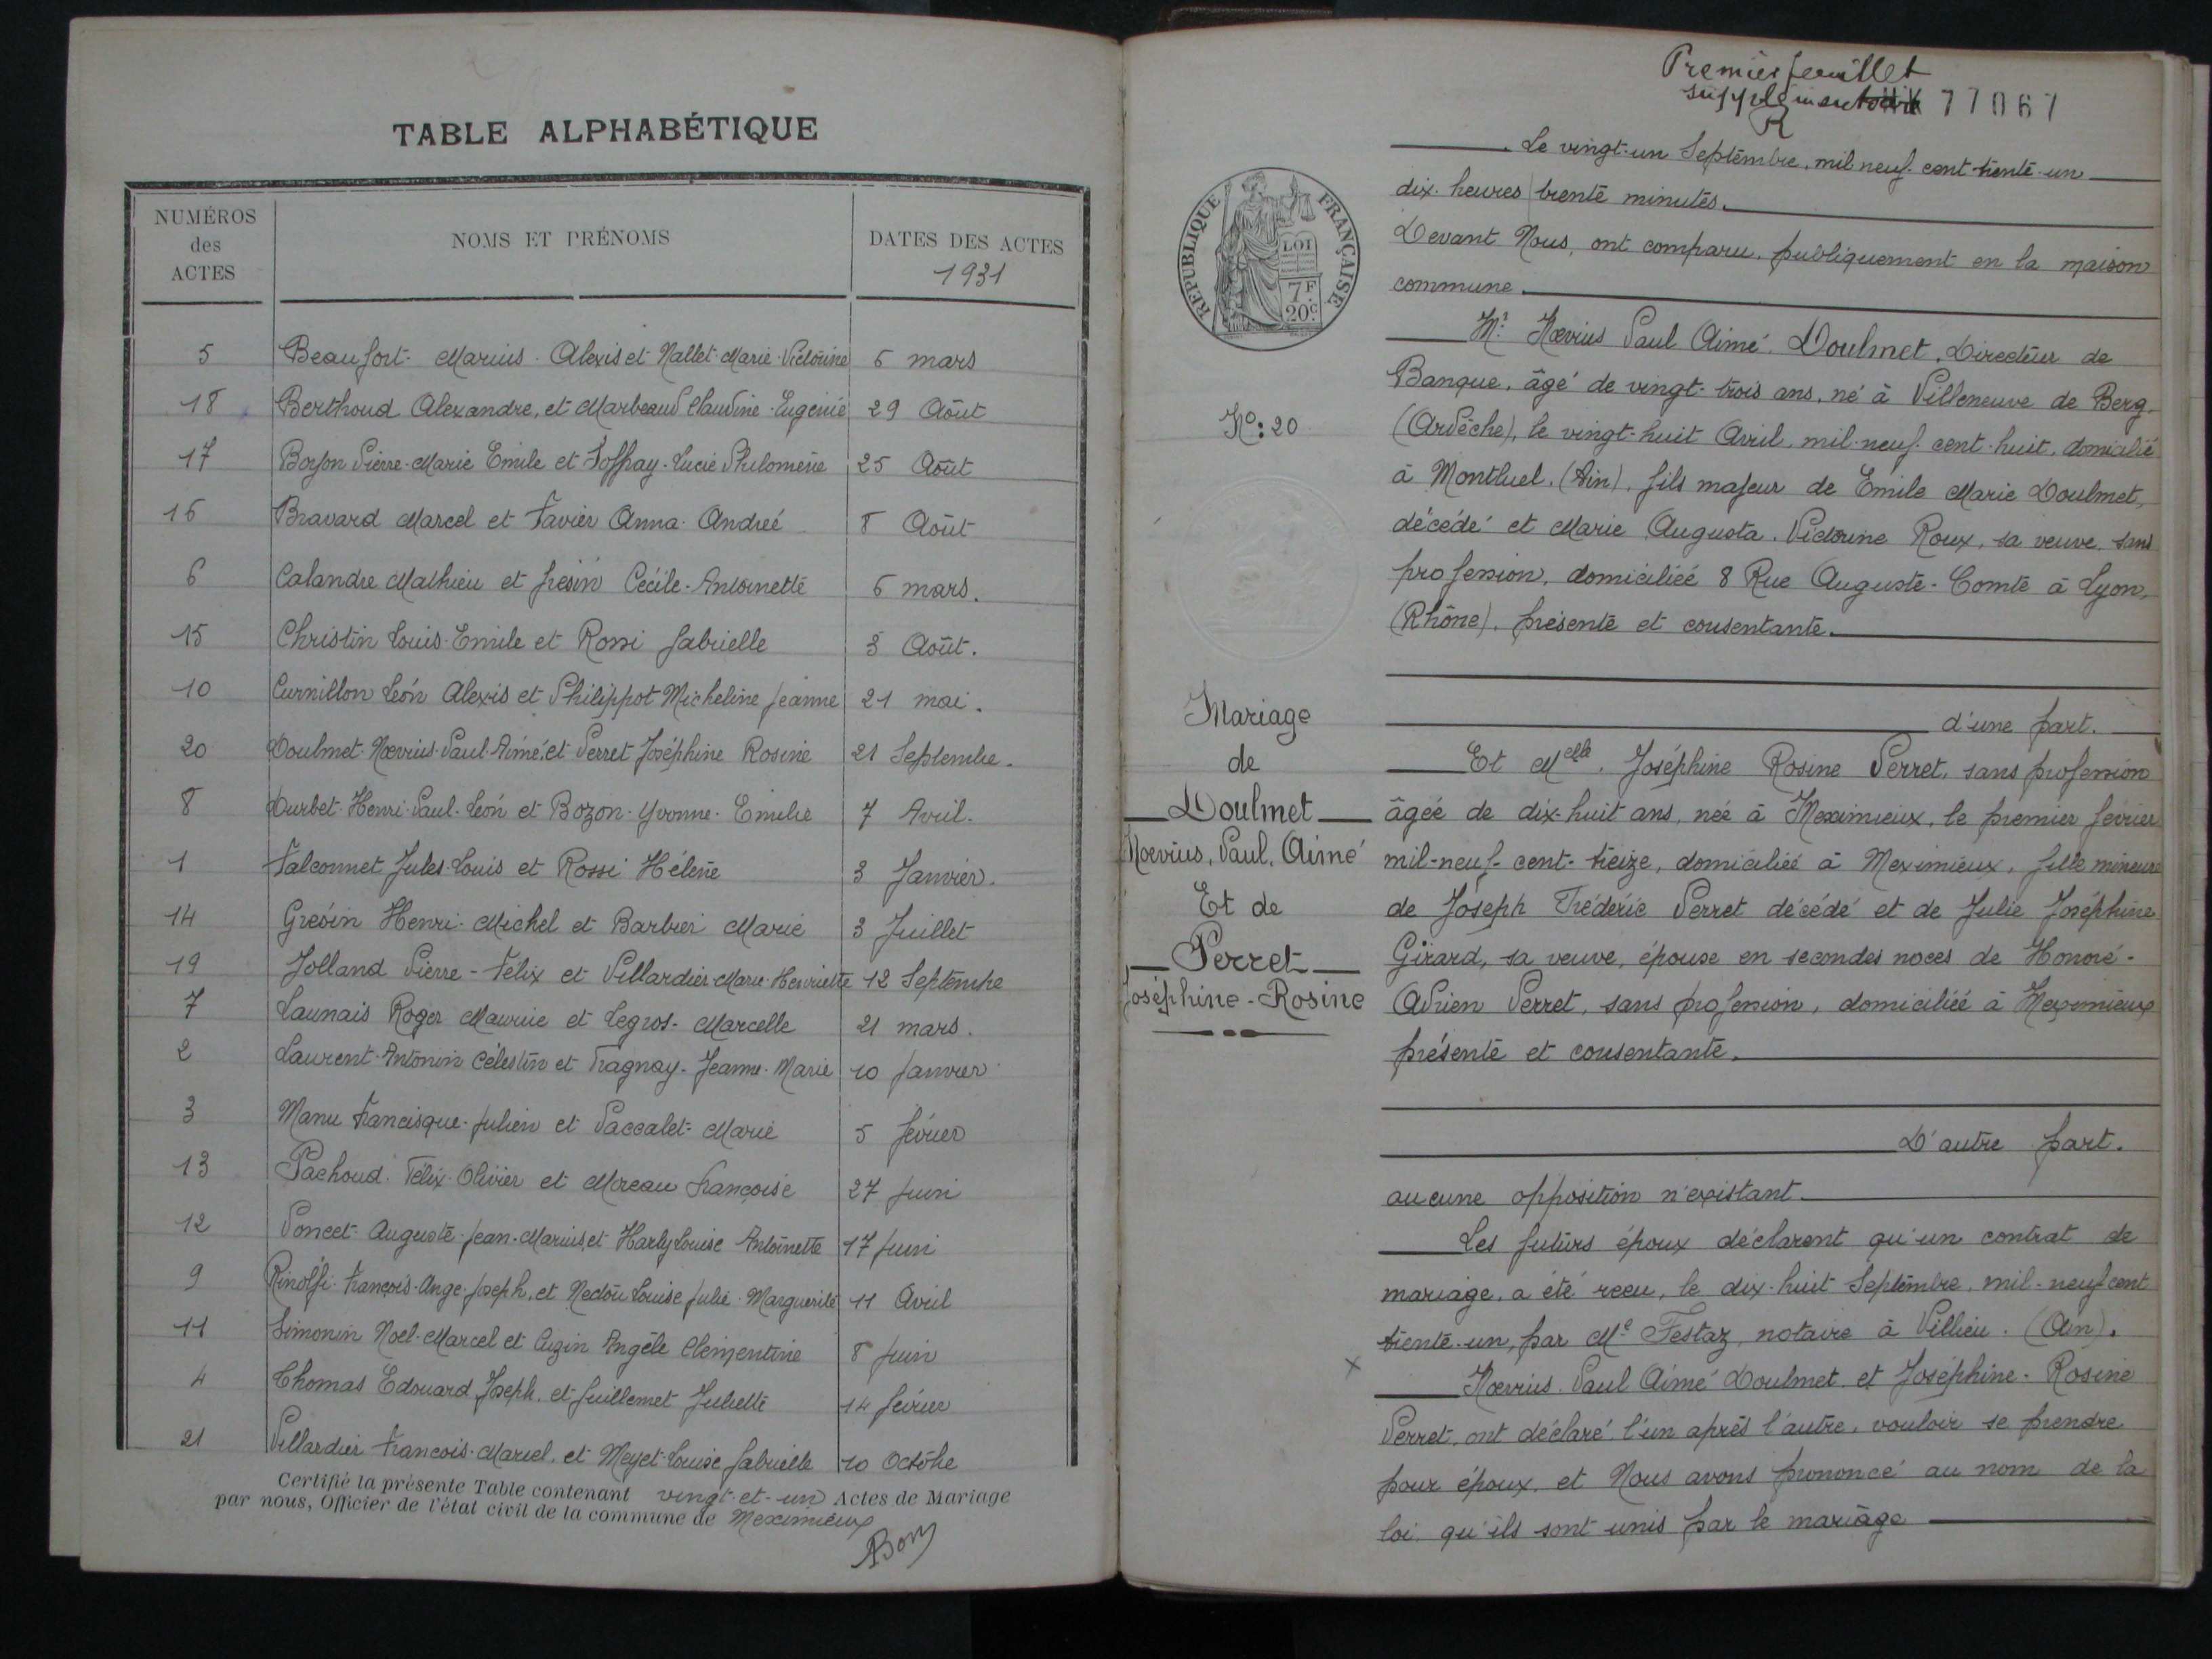 TABLE ALPHABÉTIQUE
NUMÉROS des ACTES | NOMS ET PRÉNOMS | DATES DES ACTES 1931
5 Beaufort Marius Alexis et Nallet Marie Victorine 6 mars
18 Berthoud Alexandre, et Marbeaud Claudine Eugenie 29 Août
17 Pierre-Marie Emile et Joffray Lucie Philomène 25 Août
16 Bravard Marcel et Favier Anna Andreé 8 Août
6 Calandre Mathieu et Gresin Cécile-Antoinette 6 mars.
15 Christin Louis-Emile et Rossi Gabrielle 3 Août.
10 Curnillon Léon Alexis et Philippot Micheline Jeanne 21 mai.
20 Doulmet Nœvius Paul Aimé, et Perret Joséphine Rosine 21 Septembre.
8 Durbet Henri-Paul-Léon et Bozon-Yvonne-Emilie 7 Avril.
1 Falconnet Jules-Louis et Rossi Hélène 3 Janvier.
14 Gresin Henri-Michel et Barbier Marie 3 Juillet
19 Jolland Pierre-Félix et Villardier Marie-Henriette 12 Septembre
7 Launais Roger Maurice et Legros-Marcelle 21 mars.
2 Laurent-Antonin Célestin et Tragnay-Jeanne-Marie 10 Janvier
3 Manu Francisque-Julien et Paccalet-Marie 5 février
13 Pachoud Félix-Olivier et Moreau Françoise 27 Juin
12 Poncet Auguste-Jean-Marius, et Harly Louise Antoinette 17 Juin
9 Rinolfi François-Ange-Joseph, et Louise Julie Marguerite 11 Avril
11 Simonin Noel-Marcel et Cuzin Angèle Clémentine 8 Juin
4 Thomas Edouard Joseph, et Guillemet Juliette 14 février
21 Villardier Francois-Marcel, et Meyet-Louise Gabrielle 10 Octobre
Certifié la présente Table contenant vingt-et-un Actes de Mariage
par nous, Officier de l'état civil de la commune de Meximieux
Premier feuillet
supplémentaire 77067
REPUBLIQUE FRANÇAISE
LOI
7F
20c
Le vingt-un Septembre, mil neuf cent trente-un
dix heures trente minutes.
Devant Nous, ont comparu, publiquement en la maison
commune.
Mr Nœvius Paul Aimé Doulmet, Directeur de
Banque, âgé de vingt-trois ans, né à Villeneuve de Berg,
(Ardèche), le vingt-huit Avril, mil-neuf cent-huit, domicilié
à Montluel, (Ain), fils majeur de Emile Marie Doulmet,
décédé et Marie Augusta Victorine Roux, sa veuve, sans
profession, domiciliée 8 Rue Auguste-Comte à Lyon,
(Rhône), présente et consentante.
d'une part.
No: 20
Mariage
de
Doulmet
Nœvius, Paul, Aimé
Et de
Perret
Joséphine-Rosine
Et Melle Joséphine Rosine Perret, sans profession
âgée de dix-huit ans, née à Meximieux, le premier février
mil-neuf-cent-treize, domiciliée à Meximieux, fille mineure
de Joseph Fréderic Perret décédé et de Julie Joséphine
Girard, sa veuve, épouse en secondes noces de Honoré-
Adrien Perret, sans profession, domiciliée à Meximieux
présente et consentante.
D'autre part.
aucune opposition n'existant.
Les futurs époux déclarent qu'un contrat de
mariage, a été reçu, le dix-huit Septembre, mil-neuf cent
trente-un, par Me Festaz, notaire à Villieu. (Ain).
x Nœvius Paul Aimé Doulmet et Joséphine-Rosine
Perret, ont déclaré l'un après l'autre, vouloir se prendre
pour époux, et Nous avons prononcé au nom de la
loi, qu'ils sont unis par le mariage